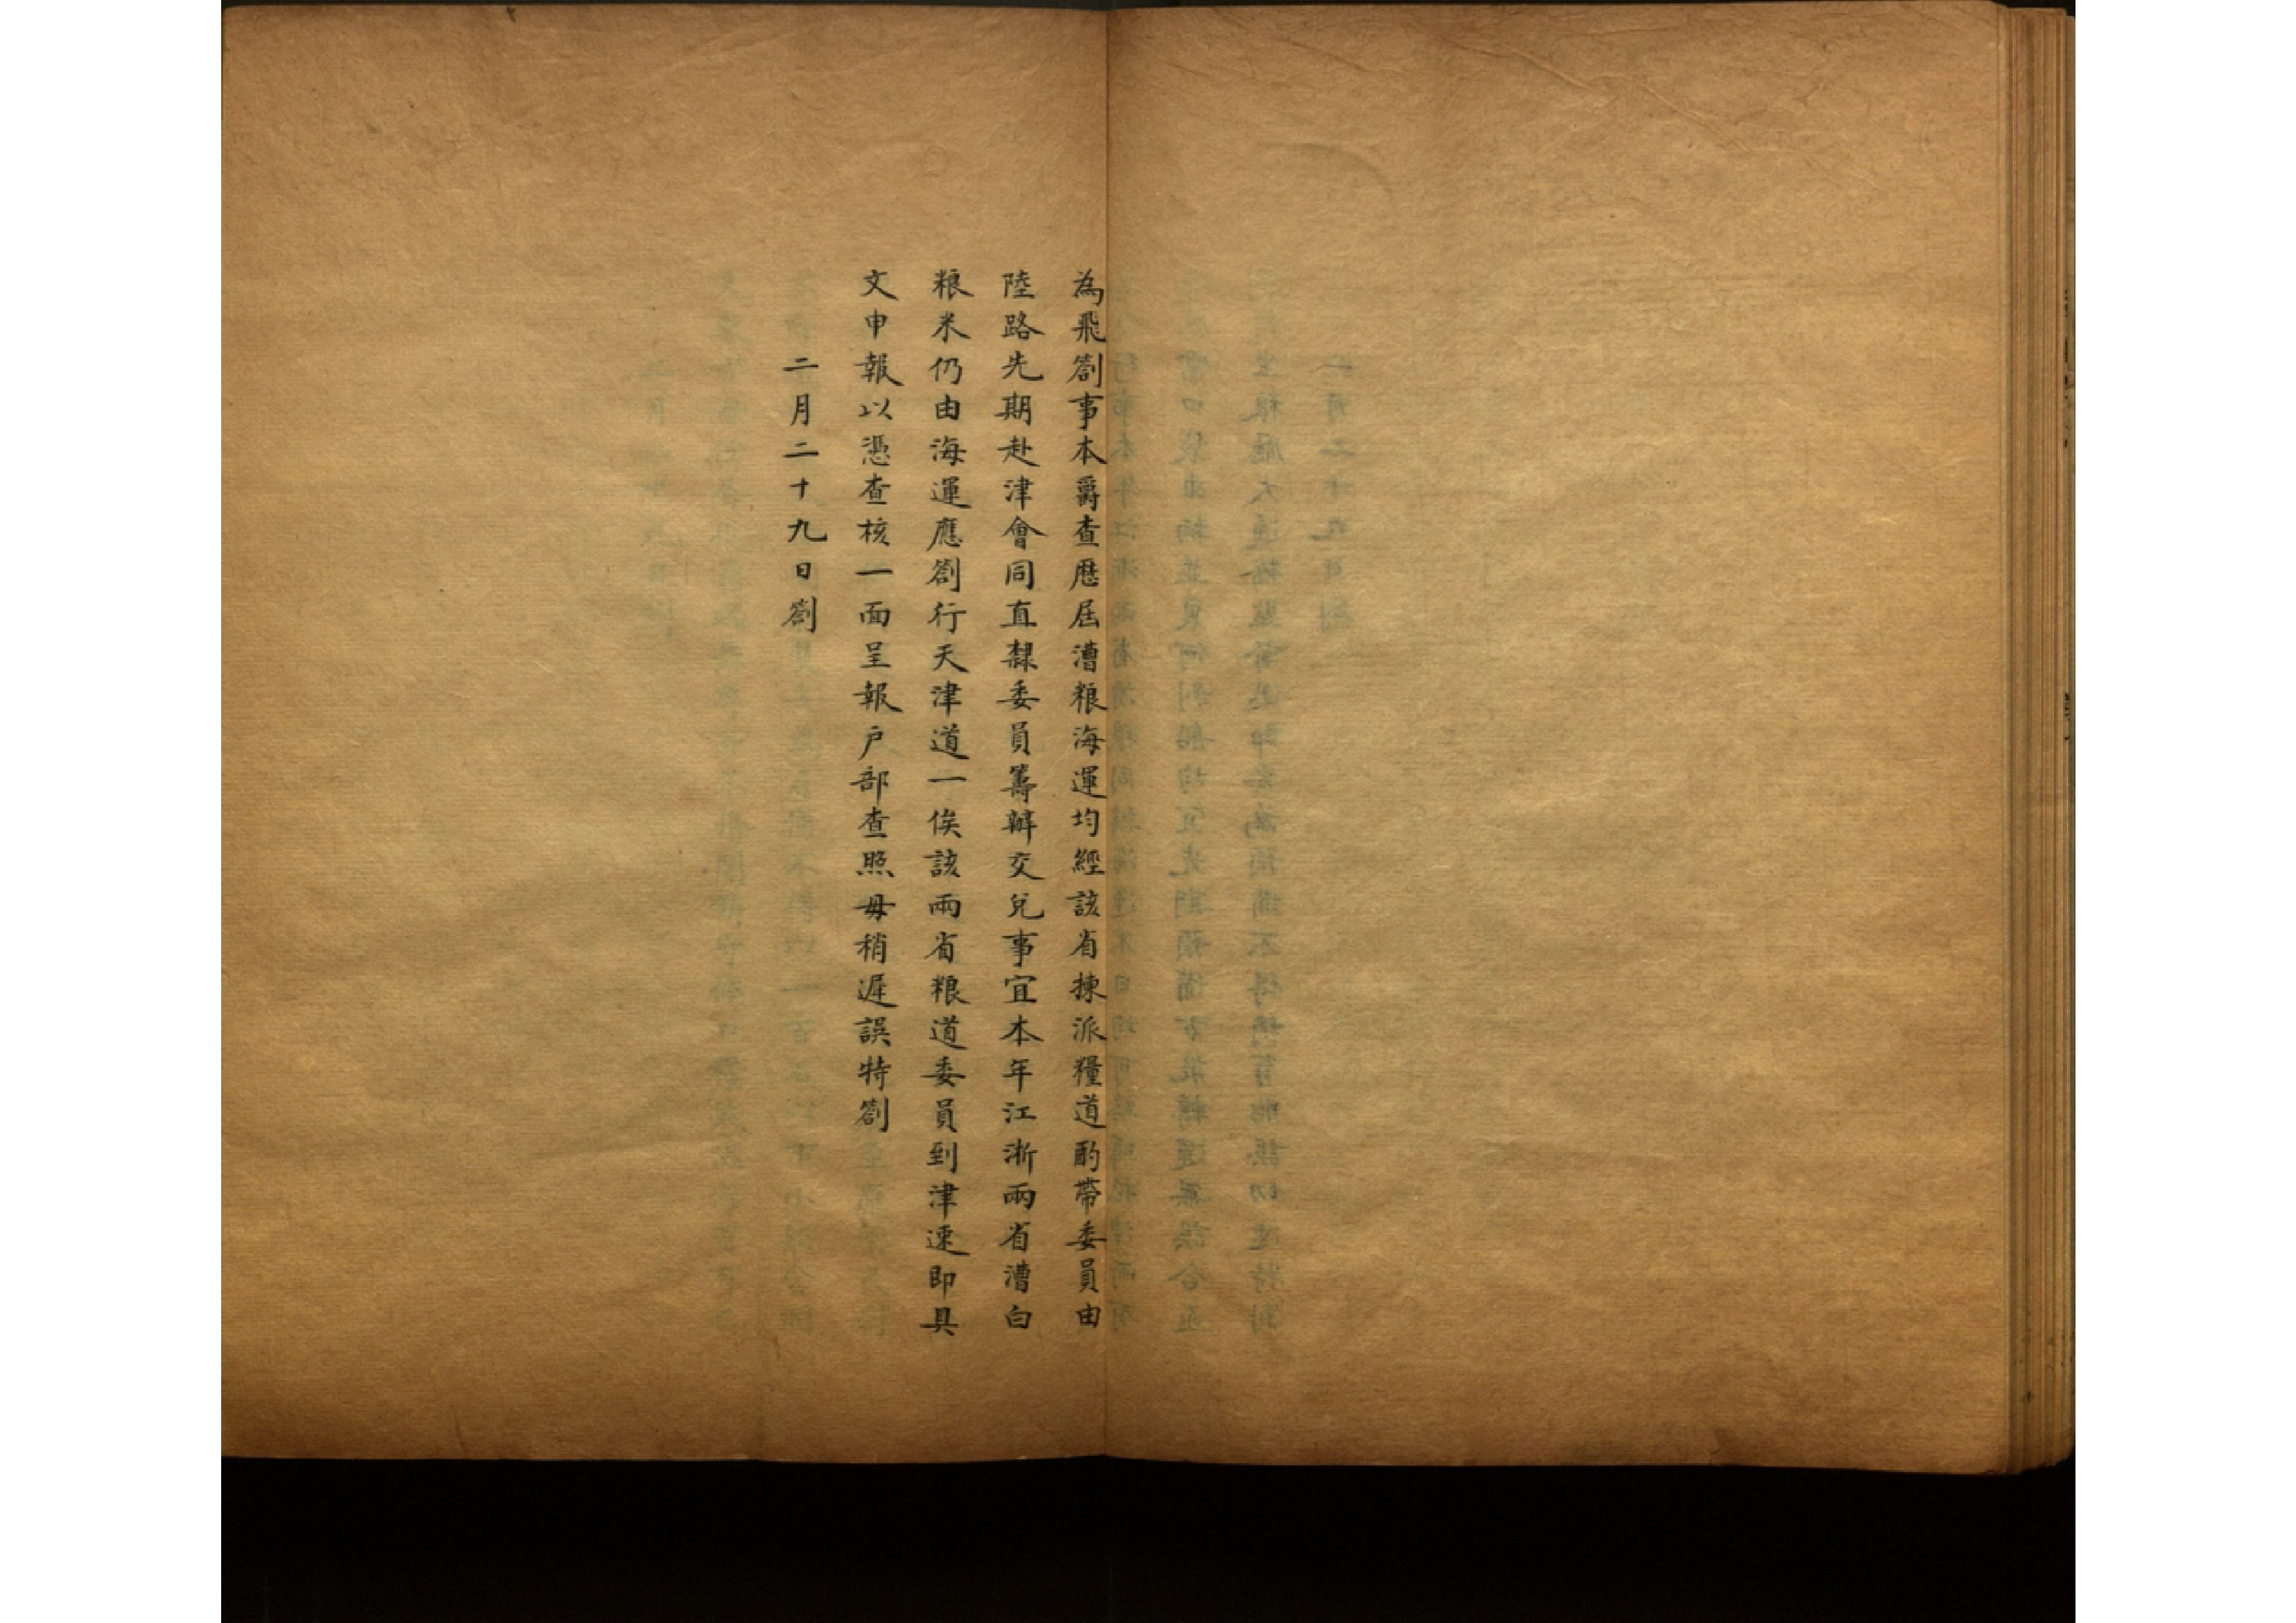 為飛劄事本爵查歷屆漕粮海運均經該省揀派糧道酌帶委員由
陸路先期赴津會同直隸委員籌辦交兌事宜本年江浙兩省漕白
粮米仍由海運應劄行天津道一俟該兩省粮道委員到津速即具
文申報以憑查核一面呈報户部查照毋稍遲誤特劄
二月二十九日劄